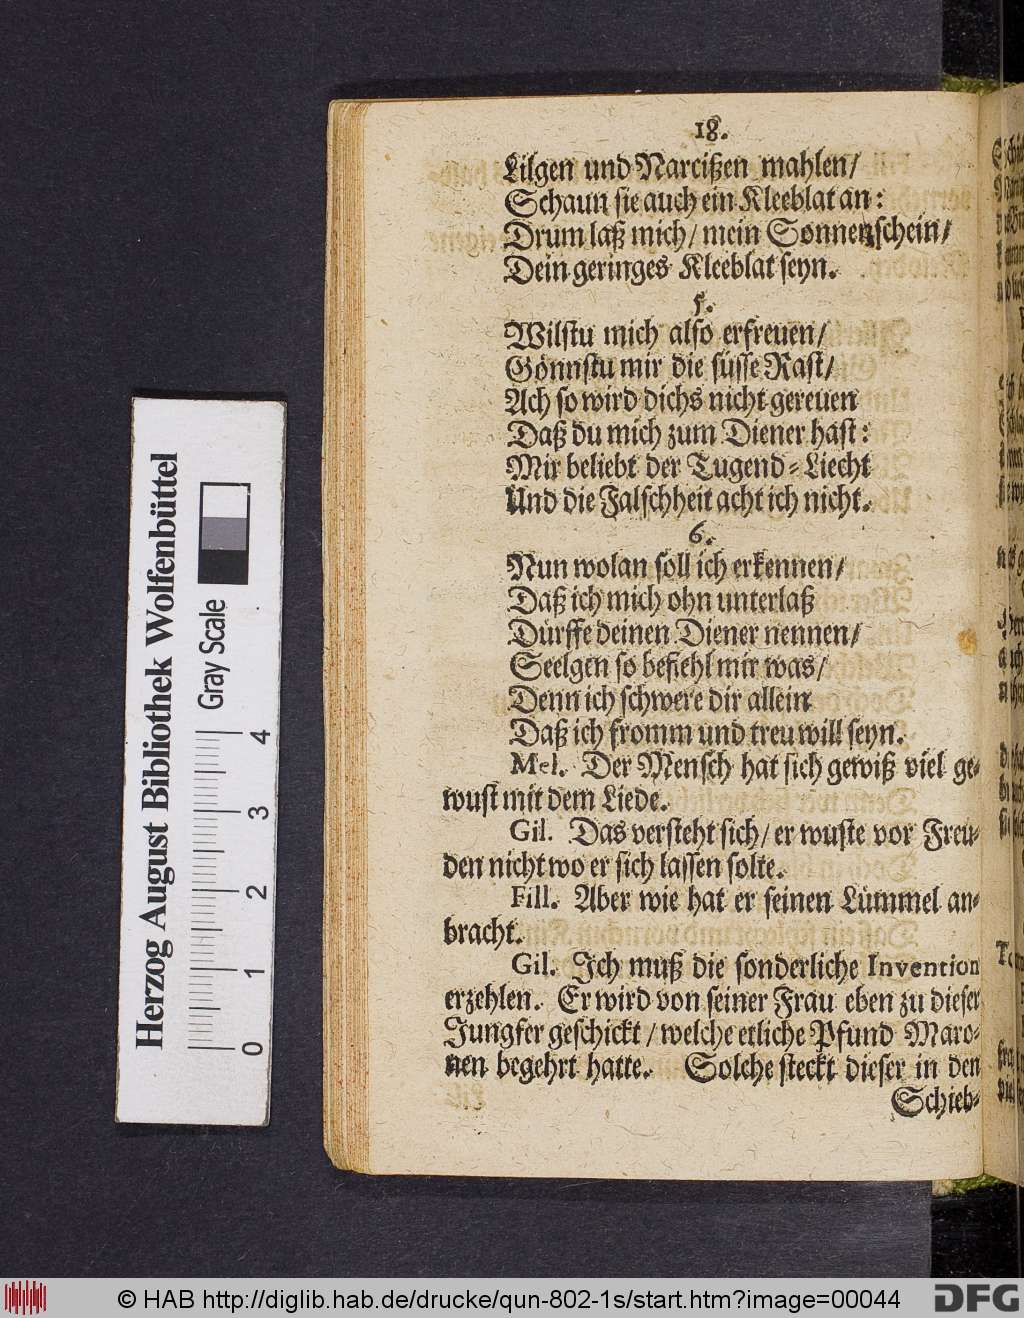 18.
Lilgen und Narcißen mahlen/
Schaun sie auch ein Kleeblat an:
Drum laß mich/ mein Sonnenschein/
Dein geringes Kleeblat seyn.
5.
Wilstu mich also erfreuen/
Gönnstu mir die süsse Rast/
Ach so wird dichs nicht gereuen
Daß du mich zum Diener hast:
Mir beliebt der Tugend-Liecht
Und die Falschheit acht ich nicht.
6.
Nun wolan soll ich erkennen/
Daß ich mich ohn unterlaß
Dürffe deinen Diener nennen/
Seelgen so befiehl mir was/
Denn ich schwere dir allein
Daß ich fromm und treu will seyn.
Mel. Der Mensch hat sich gewiß viel ge-
wust mit dem Liede.
Gil. Das versteht sich/ er wuste vor Freu-
den nicht wo er sich lassen solte.
Fill. Aber wie hat er seinen Lümmel an-
bracht.
Gil. Ich muß die sonderliche Invention
erzehlen. Er wird von seiner Frau eben zu dieser
Jungfer geschickt/ welche etliche Pfund Maro-
nen begehrt hatte. Solche steckt dieser in den
Schieb-
Herzog August Bibliothek Wolfenbüttel
Gray Scale
0 1 2 3 4
© HAB http://diglib.hab.de/drucke/qun-802-1s/start.htm?image=00044
DFG